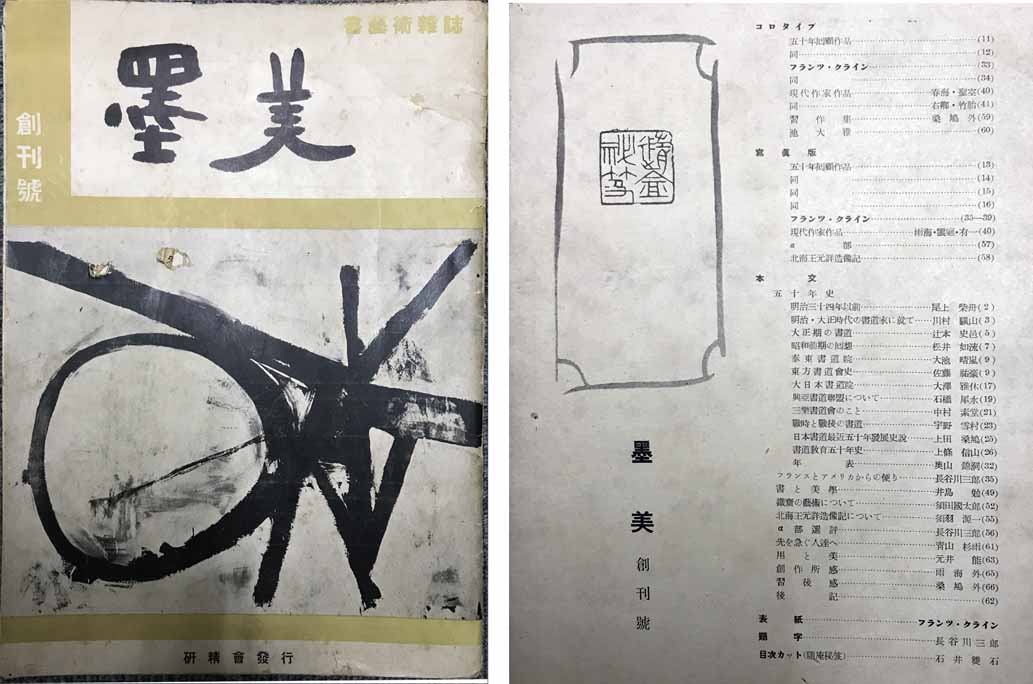 書藝術雜誌
墨美
創刊號
研精會發行
墨美 創刊號
コロタイプ
五十年回顧作品(11)
同(12)
フランツ・クライン(33)
同(34)
現代作家作品 春海・聖空(40)
同 右卿・竹胎(41)
習作集 梁鳩外(59)
池大雅(60)
寫眞版
五十年回顧作品(13)
同(14)
同(15)
同(16)
フランツ・クライン(35—39)
現代作家作品(40)
α部(57)
北海王元詳造像記(58)
本文
五十年史
明治三十四年以前 尾上柴舟(2)
明治・大正時代の書道家に就て 川村驥山(3)
大正期の書道 辻本史邑(5)
昭和前期の回想 松井如流(7)
泰東書道院 大池晴嵐(9)
東方書道會史 佐藤祐豪(9)
大日本書道院 大澤雅休(17)
興亞書道聯盟について 石橋犀水(19)
三樂書道會のこと 中村素堂(21)
戰時と戰後の書道 宇野雪村(23)
日本書道最近五十年發展史說 上田桑鳩(25)
書道敎育五十年史 上條信山(26)
年表 奧山錦洞(32)
フランスとアメリカからの便り 長谷川三郎(35)
書と美學 井島勉(49)
鐵齋の藝術について 須田國太郎(52)
北海王元詳造像記について 須羽源一(55)
α部選評 長谷川三郎(56)
先を急ぐ人達へ 靑山杉雨(61)
用と美 元井能(63)
創作所感 雨海外(65)
習後感 梁鳩外(66)
後記(62)
表紙 フランツ・クライン
題字 長谷川三郎
目次カット 石井雙石